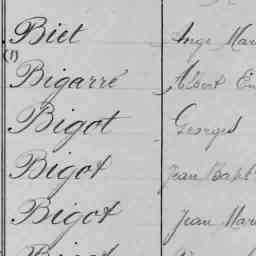 Biet Ange Mar
(1)
Bigarré Albert Em
Bigot Georges
Bigot Jean Bapt
Bigot Jean Mar
Bigot